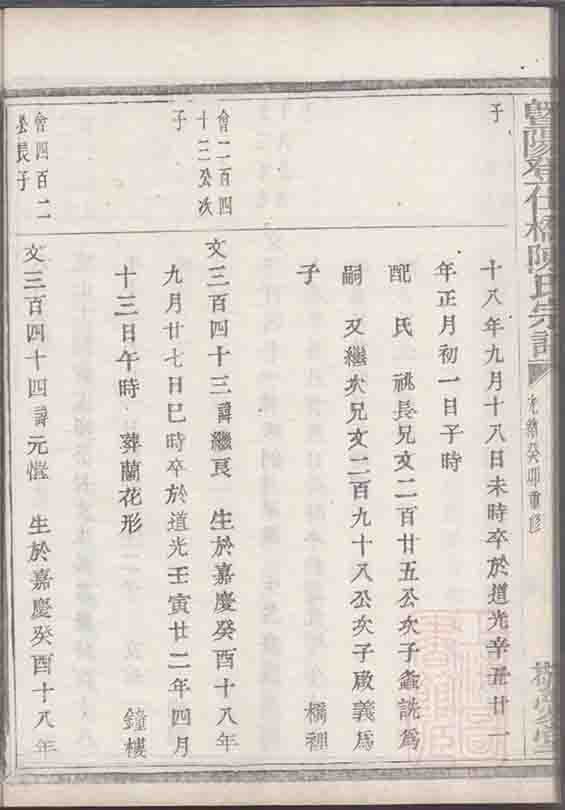 暨陽登仕橋陳氏宗譜
光緒癸卯重修
子
十八年九月十八日未時卒於道光辛丑廿一
年正月初一日子時
配 氏 祧長兄文二百廿五公次子 詵為
嗣 又繼次兄文二百九十八公次子啟義為
子 橋裡
會二百四
十三公次
子
文三百四十三諱繼良 生於嘉慶癸酉十八年
九月廿七日巳時卒於道光壬寅廿二年四月
十三日午時 葬蘭花形 鐘樓
會四百二
公長子
文三百四十四諱元愷 生於嘉慶癸酉十八年